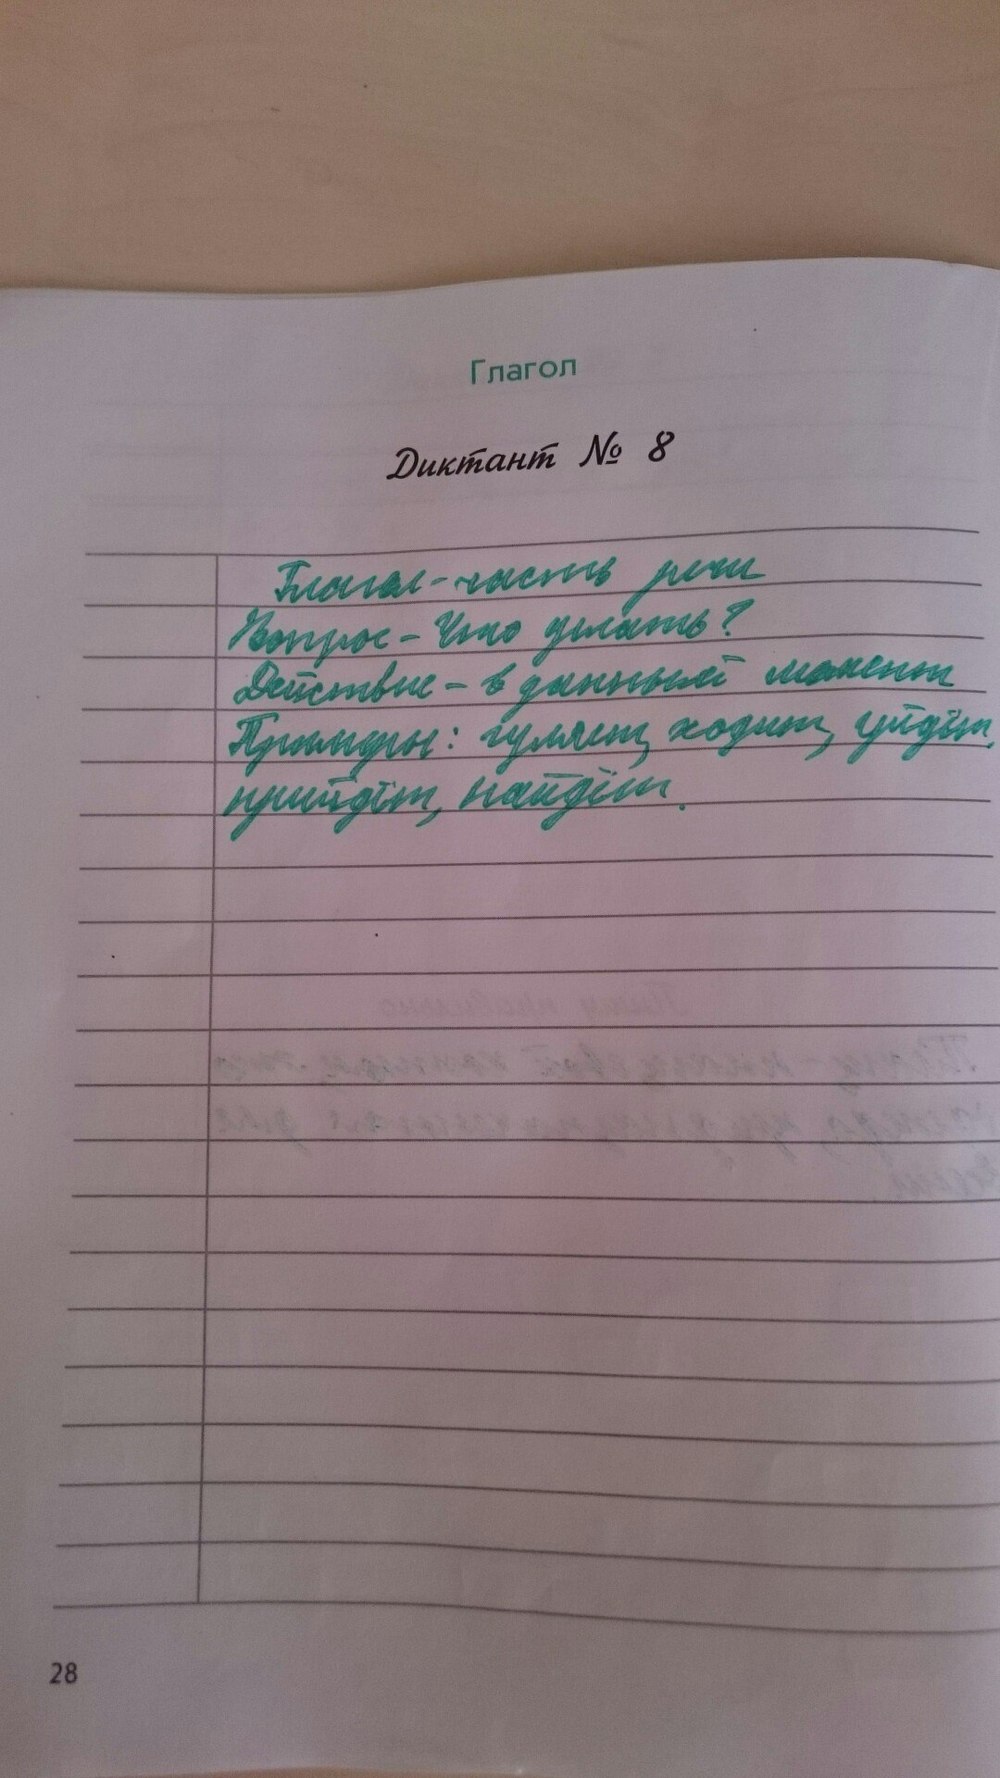 Глагол
Диктант № 8
Глагол - часть речи
Вопрос - Что делать?
Действие - в данный момент
Примеры: гуляет, ходит, уйдёт,
прийдёт, найдёт.
28